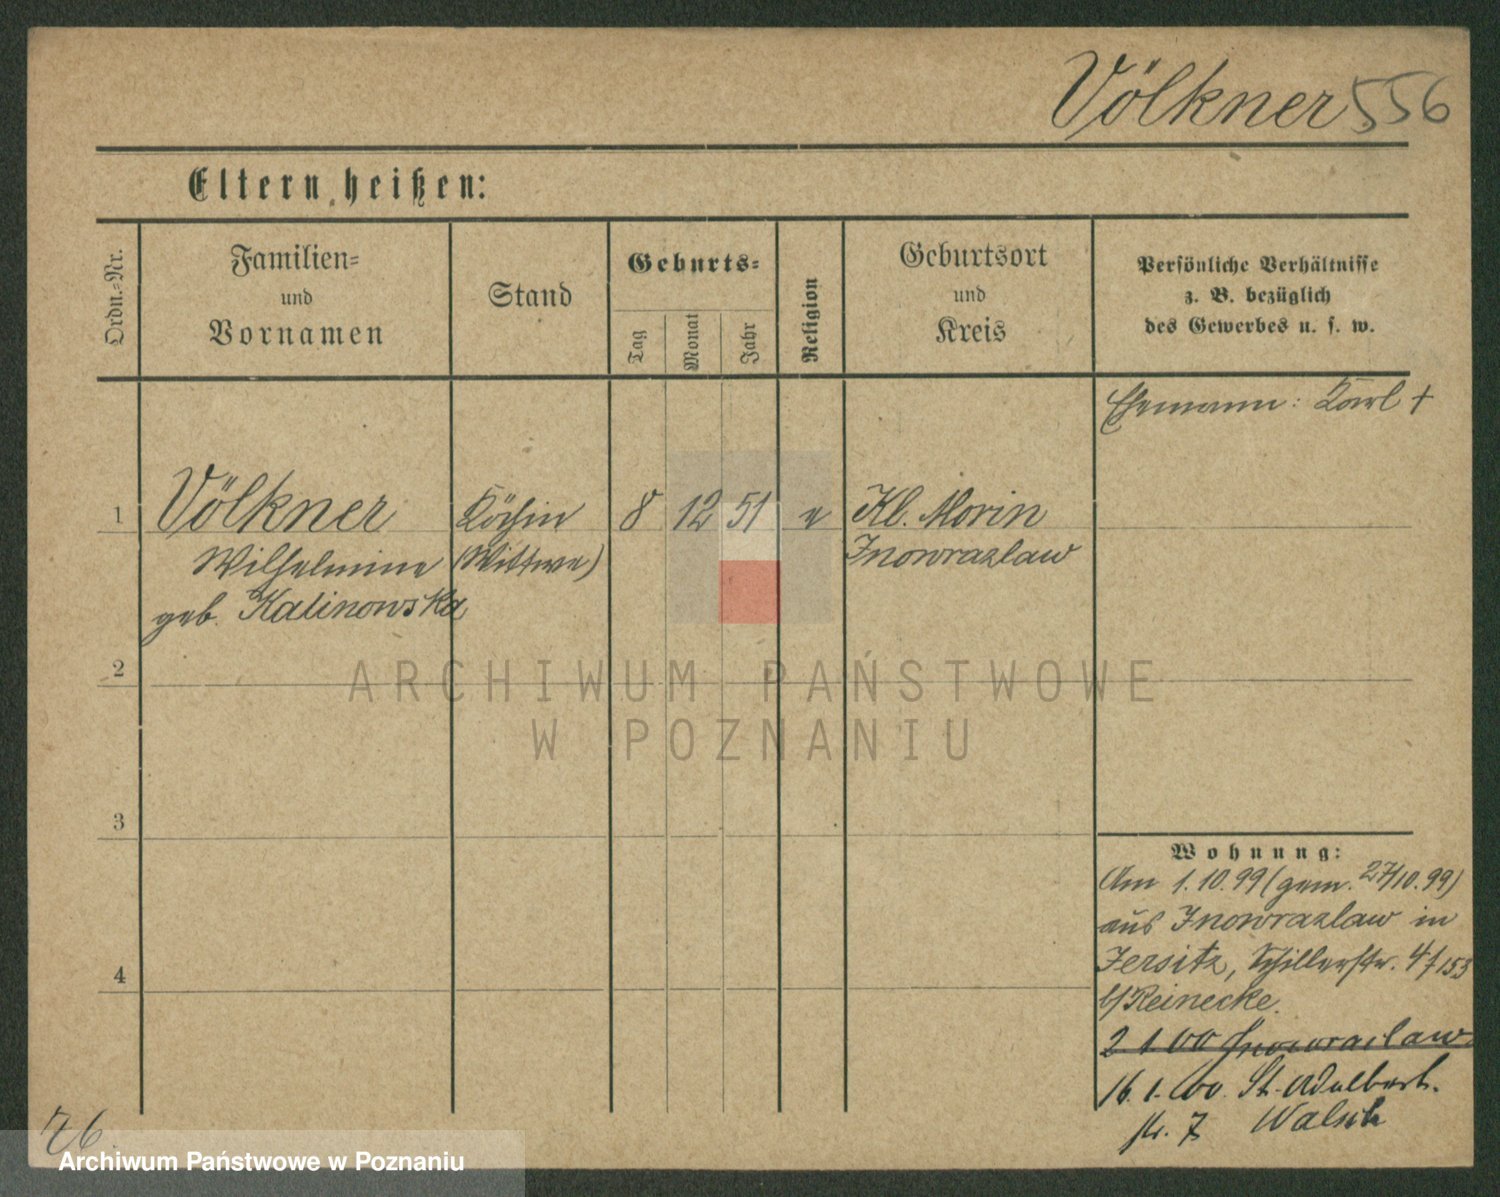 Völkner 556
Eltern heißen:
Ordn.-Nr.
Familien-
und
Vornamen
Stand
Geburts-
Tag
Monat
Jahr
Religion
Geburtsort
und
Kreis
Persönliche Verhältnisse
z. B. bezüglich
des Gewerbes u. s. w.
Ehemann: Karl †
1 Völkner Köchin 8 12 51 e Kl. Morin
Wilhelmine (Wittwe) Inowrazlaw
geb. Kalinowska
2
ARCHIWUM PAŃSTWOWE
W POZNANIU
3
Wohnung:
Am 1.10.99 (gem. 27/10.99)
aus Inowrazlaw in
4
Jersitz, Schillerstr. 4/153
b/Reinecke.
2 1 00 Inowrazlaw
16.1.00. St. Adalbert.
str. 7 Walsch
76.
Archiwum Państwowe w Poznaniu